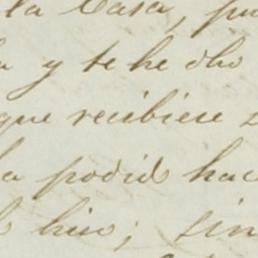 la Casa, pu
a y te he dho
que recibiese
a podid hac
hiso; sin